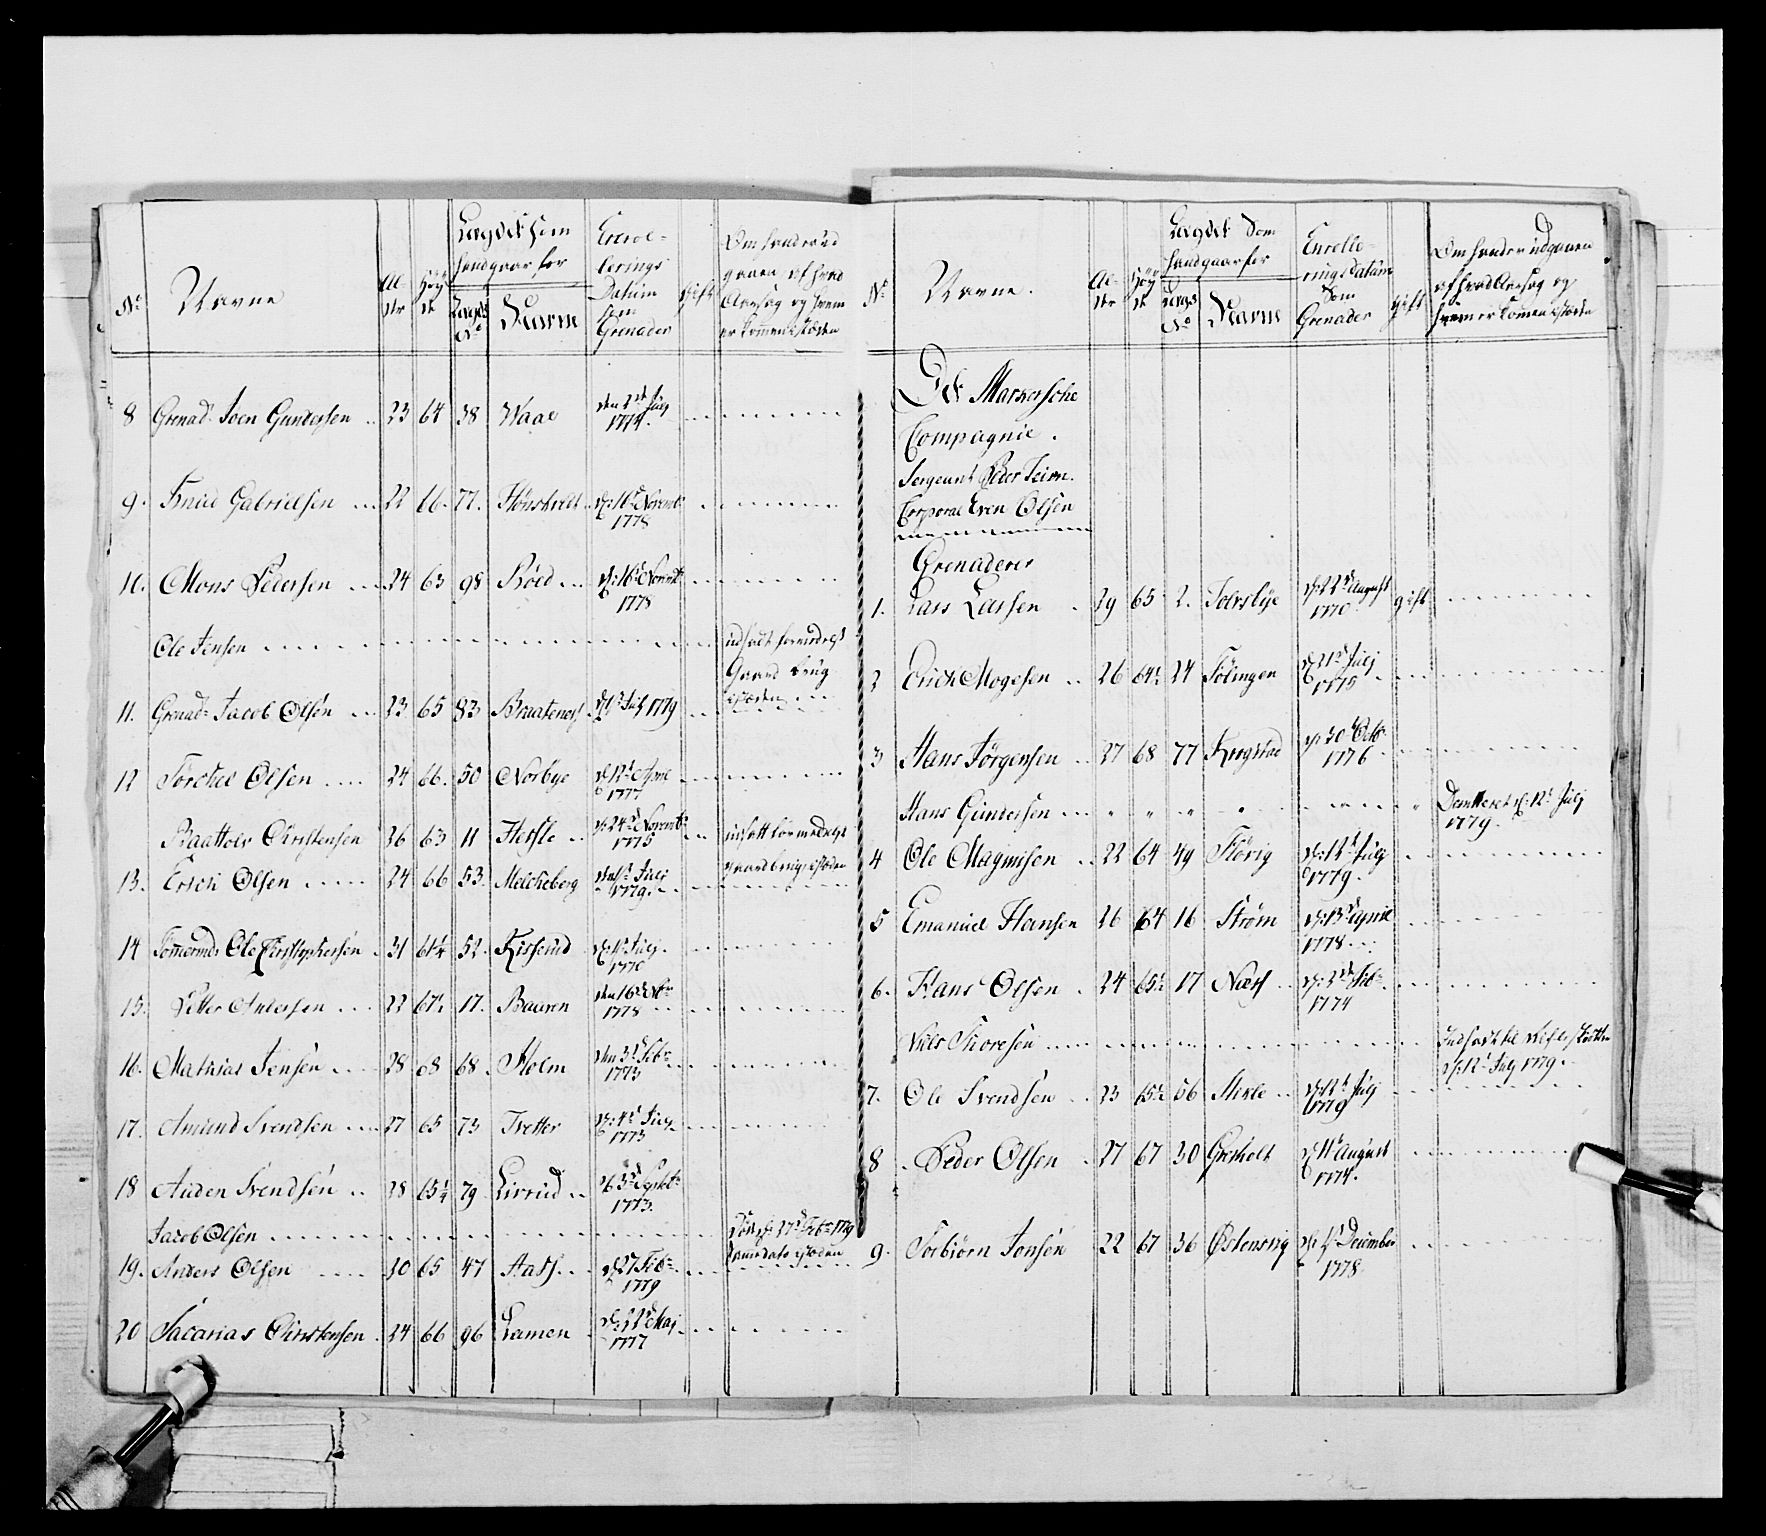 No
Navne
Al-
der
Høy
de
Lægdet som
hand gaar for
Lægds
No
Navne
Enrol-
lerings
Datum
som
Grenader
gift
Om hand er ud
gaaen af hvad
Aarsag og hvem
er kommen i stæden
8 Grenad: Joen Gundersen 23 64 38 Waal den 1de July
1774.
9. Knud Gabrielsen 22 66. 77. Hønskvelt d: 16de Novemb:
1778
10. Mons Pedersen 24 63 98 Röed d: 16de Novemb:
1778
Ole Jensen udsadt formedelst
Gaard brug
i stæden
11. Grenad: Jacob Olsen 23 65 83 Braatenes d: 1de July 1779
12 Torchel Olsen 24 66. 50 Norbye d: 12te Aprl
1777
Baattolv Christensen 26 63 11 Herfle d: 24de Novemb:
1775 udsatt formedelst
gaardbrug i stæden
13. Erich Olsen 24 66 53. Melcheberg den 1de Julj
1779.
14 Tømermd: Ole Christophersen 31 61¼ 52. Kisserud d: 1de Julj
1770
15. Petter Andersen 22 67½ 17. Bauren den 16de Nbr
1778
16. Mathias Jensen 28 68 68. Holm den 3de Febr:
1773
17. Amund Svendsen 27 65 73 Tvetter d: 4de July
1773
18 Auden Svendsen 28 65¼ 79 Lirrud 26de Septbr:
1773.
Jacob Olsen Død d: 27de Febr: 1779
samedato i stæden
19. Anders Olsen 30 65 47 Aas d: 27 Febr:
1779
20 Sacarias Christensen 24 66 96 Lamen d: 22de Maj
1777
No
Navne.
Al-
der
Høy
de
Lægdet Som
hand gaar for
Lægds
No
Navne
Enrolle-
rings datum
Som
Grenader
gift
Om hand er udgaaen
af hvad Aarsag og
hvem er komen i stæden
Det Markerske
Compagnie.
Sergeant Peder
Corporal Even Olsen
Grenaderer
1. Lars Larsen 29 65 2. Tolvslye d: 22de August
1770 gift
2 Erich Mogesen 26 64½ 24 Fölingen d: 21de Julj
1775
3 Hans Jörgensen 27 68 77 Krogstad d: 30te Octbr
1776
Hans Gundersen " " " " " Demitteret d: 12te Julj
1779.
4 Ole Magnusen 22 64 49 Flörig d: 12te Julj
1779.
5 Emanuel Hansen 26 64 16 Ström d: 13de Aprill
1778
6. Hans Olsen 24 65½ 17 Næss d: 2de Febr:
1774
Niels Thoresen Indsadt til Rifle skötter
d: 12te July 1779.
7. Ole Svendsen 23 65½ 56 Merle d: 12te Julj
1779
8. Peder Olsen 27 67 30 Gresholt d: 11te August
1774.
9. Torbiörn Jonsen 22 67 36 Østensvig d: 4de December
1778